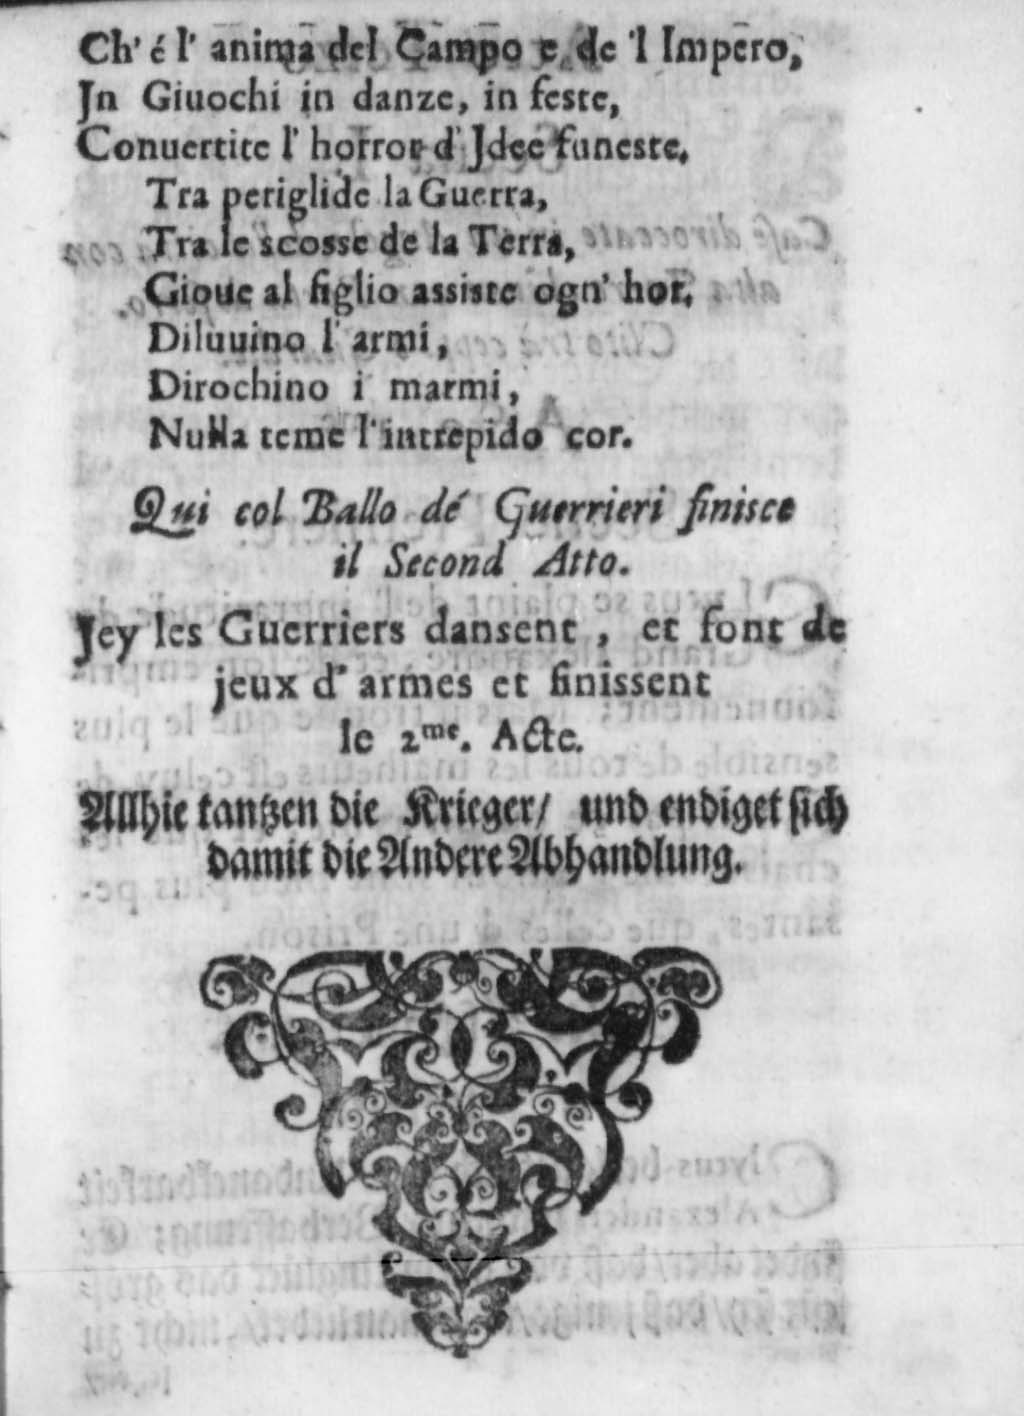 Ch' é l' anima del Campo e de 'l Impero,
Jn Giuochi in danze, in feste,
Conuertite l' horror d' Jdee funeste.
Tra periglide la Guerra,
Tra le scosse de la Terra,
Gioue al figlio assiste ogn' hor,
Diluuino l' armi,
Dirochino i marmi,
Nulla teme l' intrepido cor.
Qui col Ballo dé Guerrieri finisce
il Second Atto.
Jey les Guerriers dansent, et font de
jeux d' armes et finissent
le 2me. Acte.
Allhie tantzen die Krieger/ und endiget sich
damit die Andere Abhandlung.